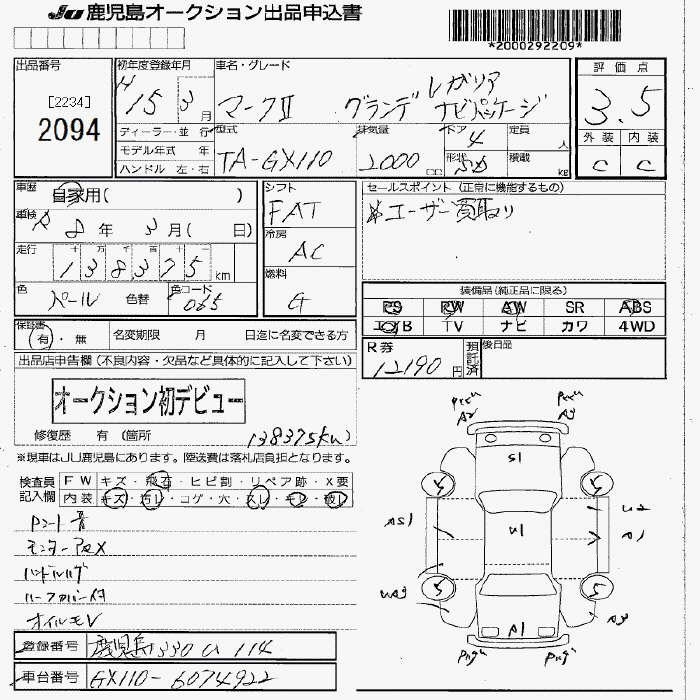 JU 鹿児島オークション出品申込書
*2000292209*
出品番号
[2234]
2094
初年度登録年月
H 15 3月
ディーラー・並行
モデル年式 年
ハンドル 左・右
車名・グレード
マークII グランデ レガリア
ナビパッケージ
型式
TA-GX110
排気量
2000 cc
ドア
4
定員
人
形状
積載
kg
評価点
3.5
外装 内装
C C
車歴
自家用( )
車検
R 8年 3月( 日)
走行
十 万 千 百 十
138375 km
色
パール 色替
色コード
065
シフト
FAT
冷房
AC
燃料
G
セールスポイント (正常に機能するもの)
※ユーザー買取り
装備品(純正品に限る)
PS PW AW SR ABS
エアB TV ナビ カワ 4WD
保証書
有・無
名変期限 月 日迄に名変できる方
R券
12190円
預託済
後日品
出品店申告欄(不良内容・欠品など具体的に記入して下さい)
オークション初デビュー
修復歴 有 (箇所 138375km)
※現車はJU鹿児島にあります。陸送費は落札店負担となります。
検査員
記入欄
FW キズ・飛石・ヒビ割・リペア跡・X要
内装 キズ・汚レ・コゲ・穴・スレ・キレ・破レ
オイルモレ
登録番号 鹿児島330 U 114
車台番号 GX110-6074922
A2
S1
S
S
AS1
U1
U2
A1
S
S
A3
A1